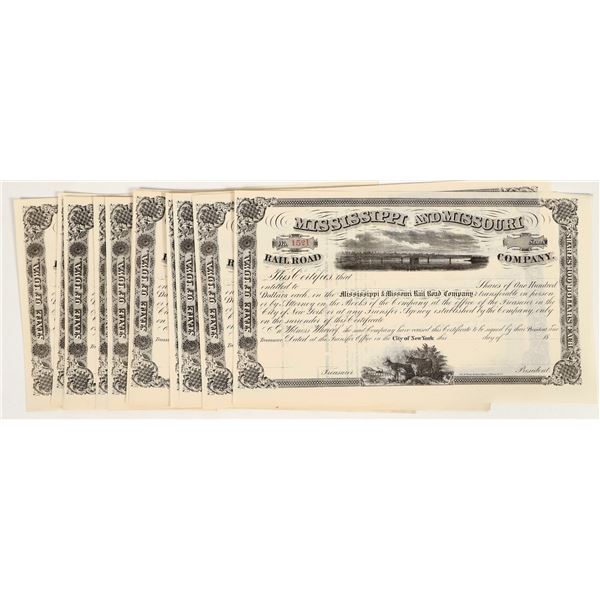 MISSISSIPPI AND MISSOURI
No. 1521 Shares
RAIL ROAD COMPANY.
This Certifies, that
entitled to Shares of One Hundred
Dollars each, in the Mississippi & Missouri Rail Road Company transferable in person
or by Attorney on the Books of the Company at the office of the Treasurer in the
City of New York or at any Transfer Agency established by the Company only
on the surrender of this Certificate
In Witness Whereof the said Company have caused this Certificate to be signed by their President and
Treasurer Dated at the Transfer Office in the City of New York this day of 18
Treasurer President.
STATE OF IOWA
SHARES 100 DOLLARS EACH
STATE OF IOWA
STATE OF IOWA
STATE OF IOWA
STATE OF IOWA
STATE OF IOWA
STATE OF IOWA
STATE OF IOWA
STATE OF IOWA